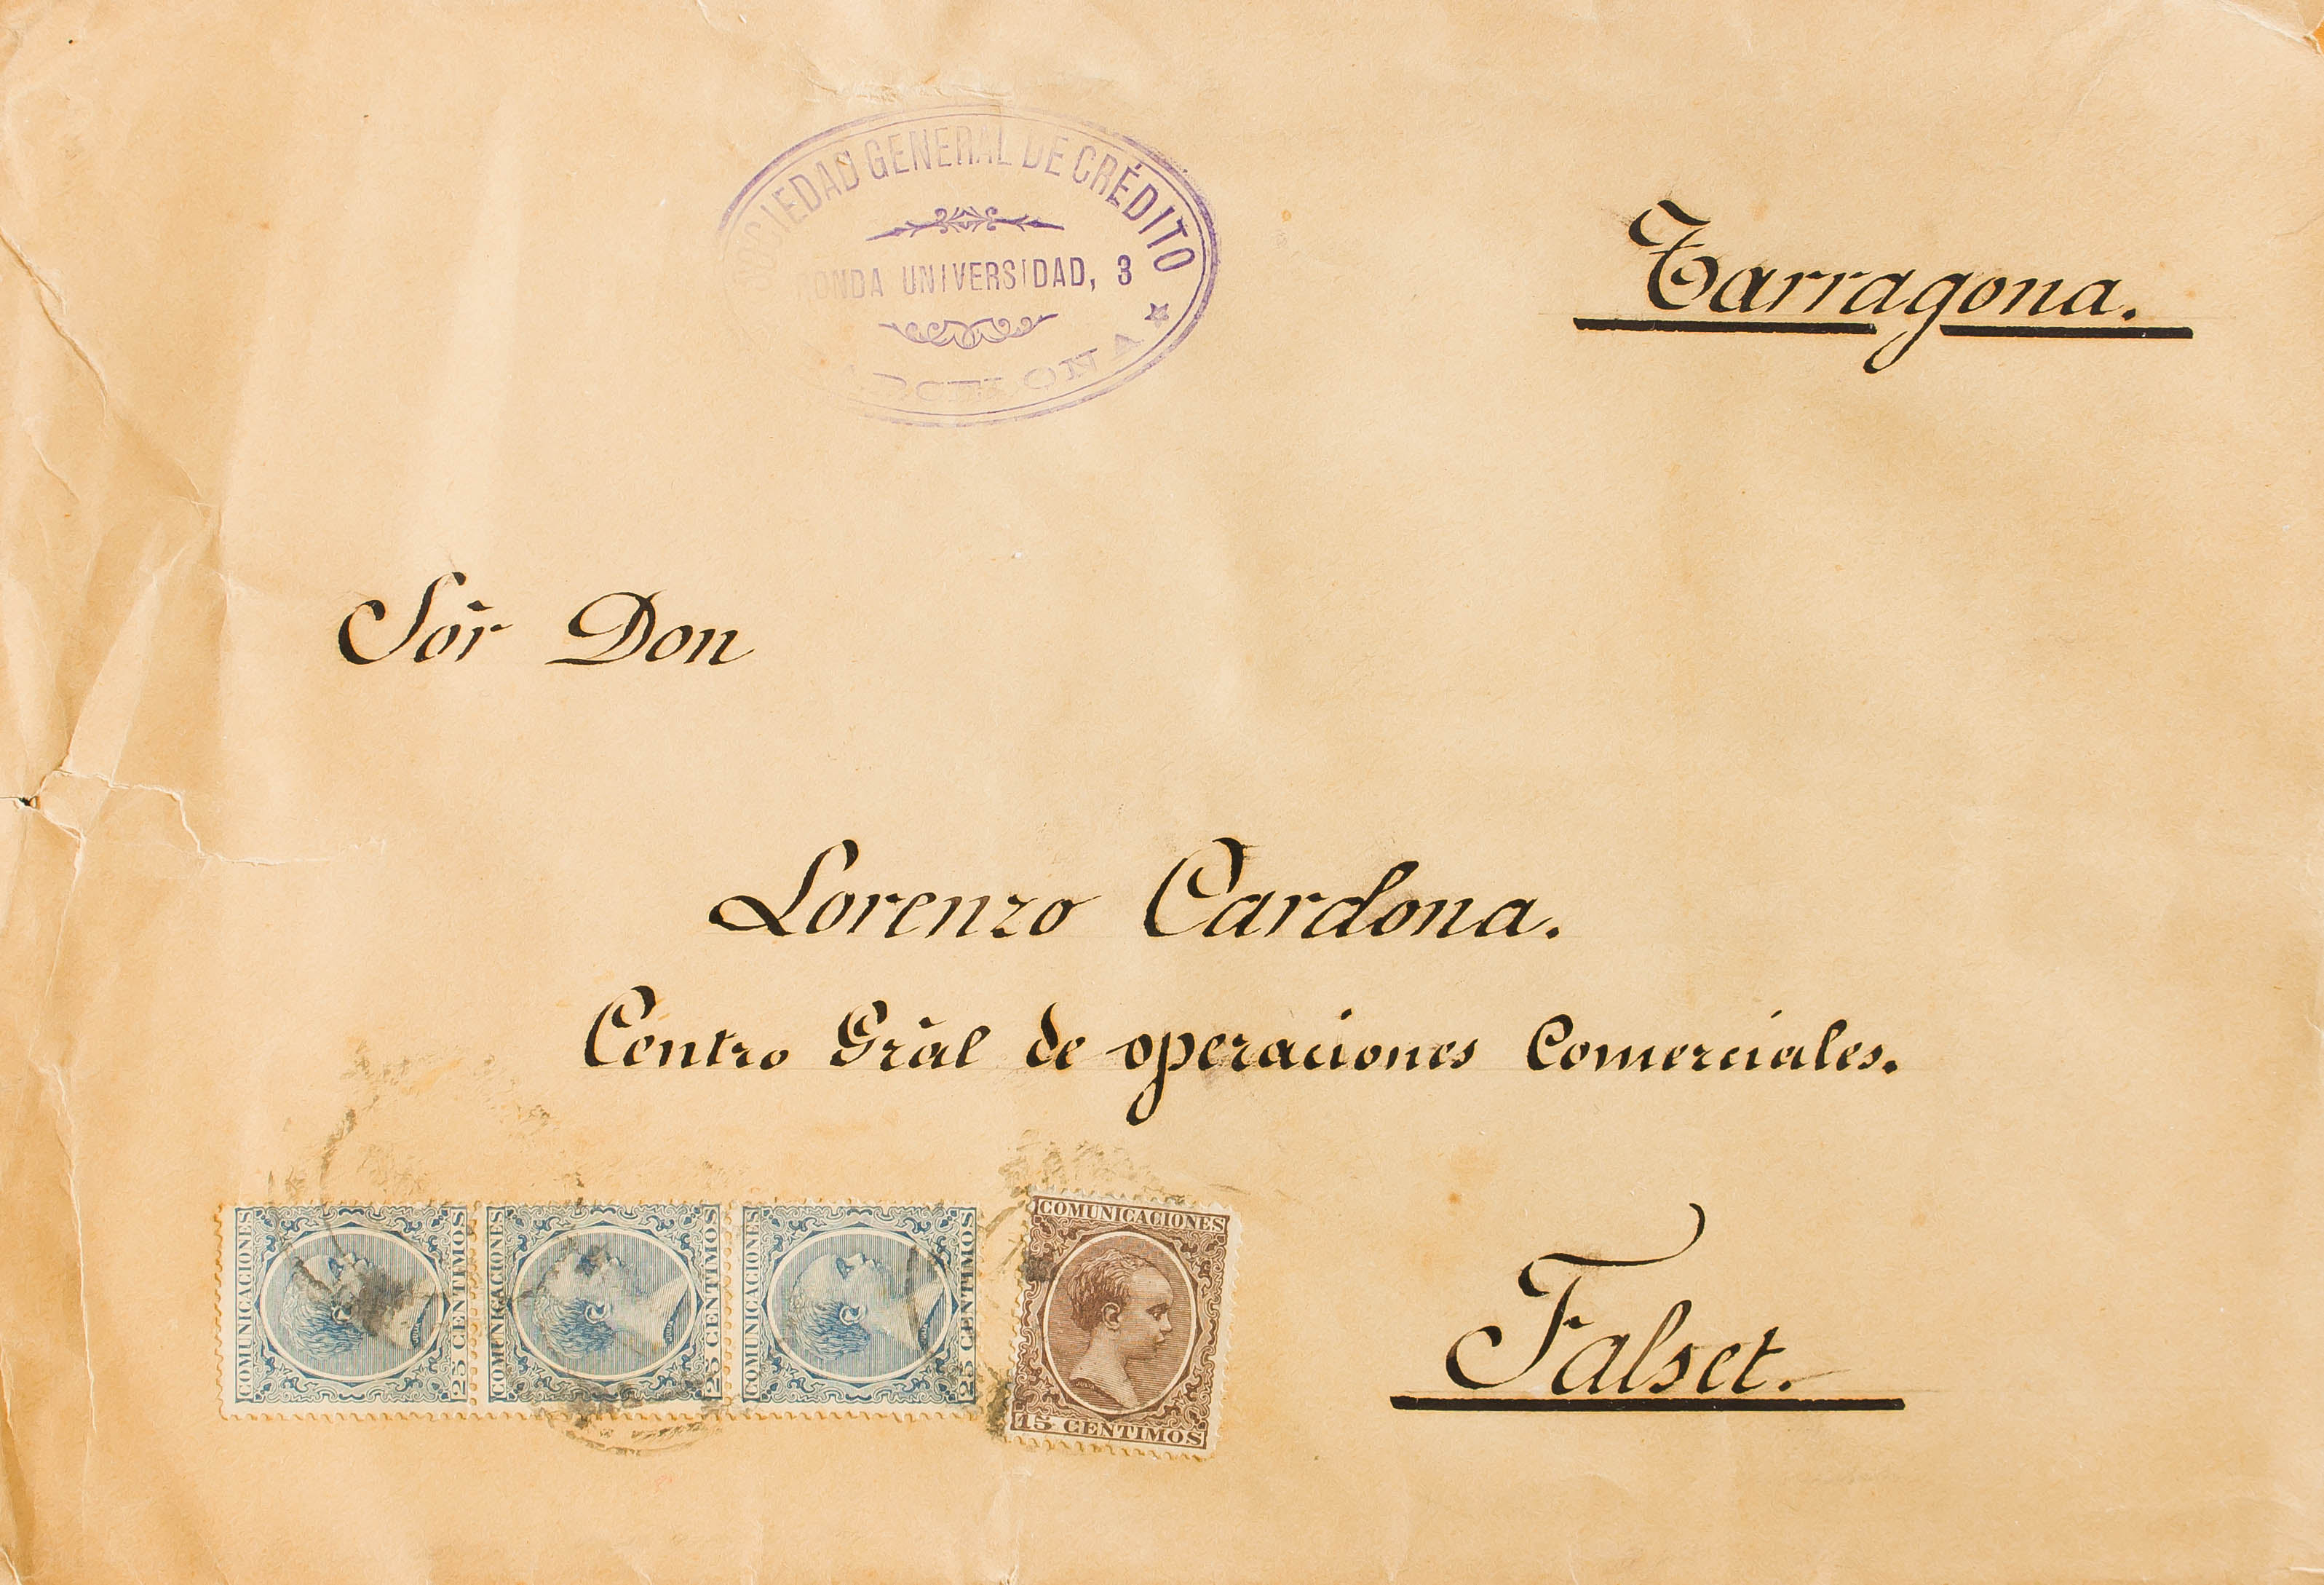 SOCIEDAD GENERAL DE CRÉDITO
RONDA UNIVERSIDAD, 3
Tarragona.
Sõr Don
Lorenzo Cardona.
Centro Grãl de operaciones Comerciales.
COMUNICACIONES
25 CENTIMOS
COMUNICACIONES
25 CENTIMOS
COMUNICACIONES
25 CENTIMOS
COMUNICACIONES
15 CENTIMOS
Falset.